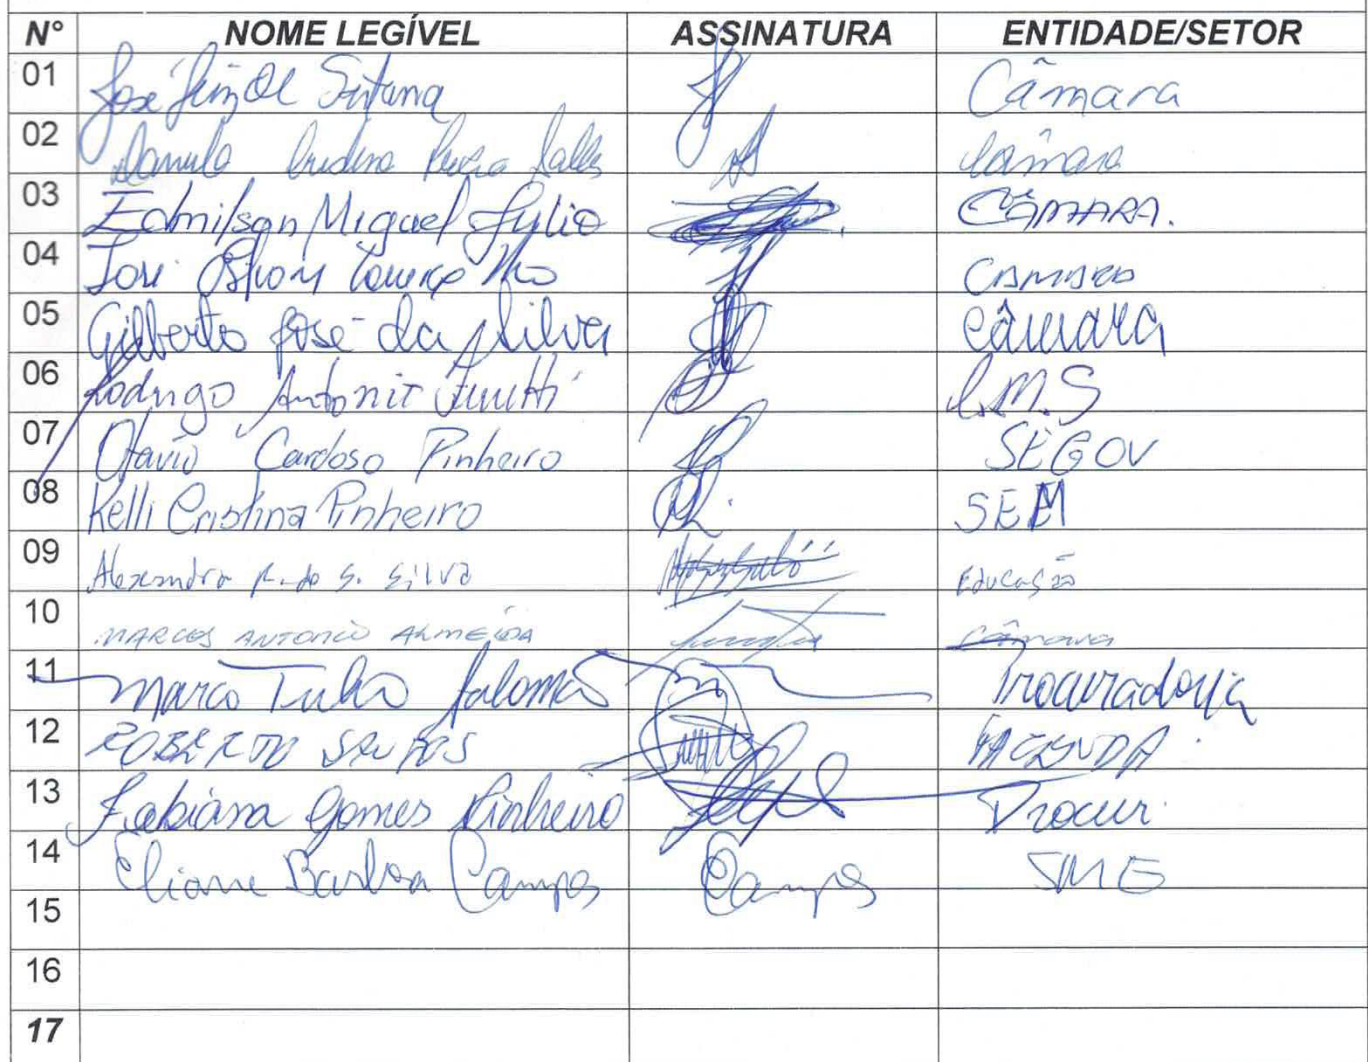 N° NOME LEGÍVEL ASSINATURA ENTIDADE/SETOR
01 José Santana Câmara
02 Salles Câmara
03 Edmilson Miguel Julio CÂMARA.
04 José CAMARA
05 Gilberto José da Silva Câmara
06 Rodrigo Antonio C.M.S
07 Otavio Cardoso Pinheiro SEGOV
08 Kelli Cristina Pinheiro SEM
09 Silva Educação
10 MARCOS ANTONIO ALMEIDA Câmara
11 Marco Tulio Salomão Procuradoria
12 ROBERTO SANTOS FAZENDA
13 Fabiana Gomes Pinheiro Procur.
14 Eliane Barbosa Campos Campos SME
15
16
17